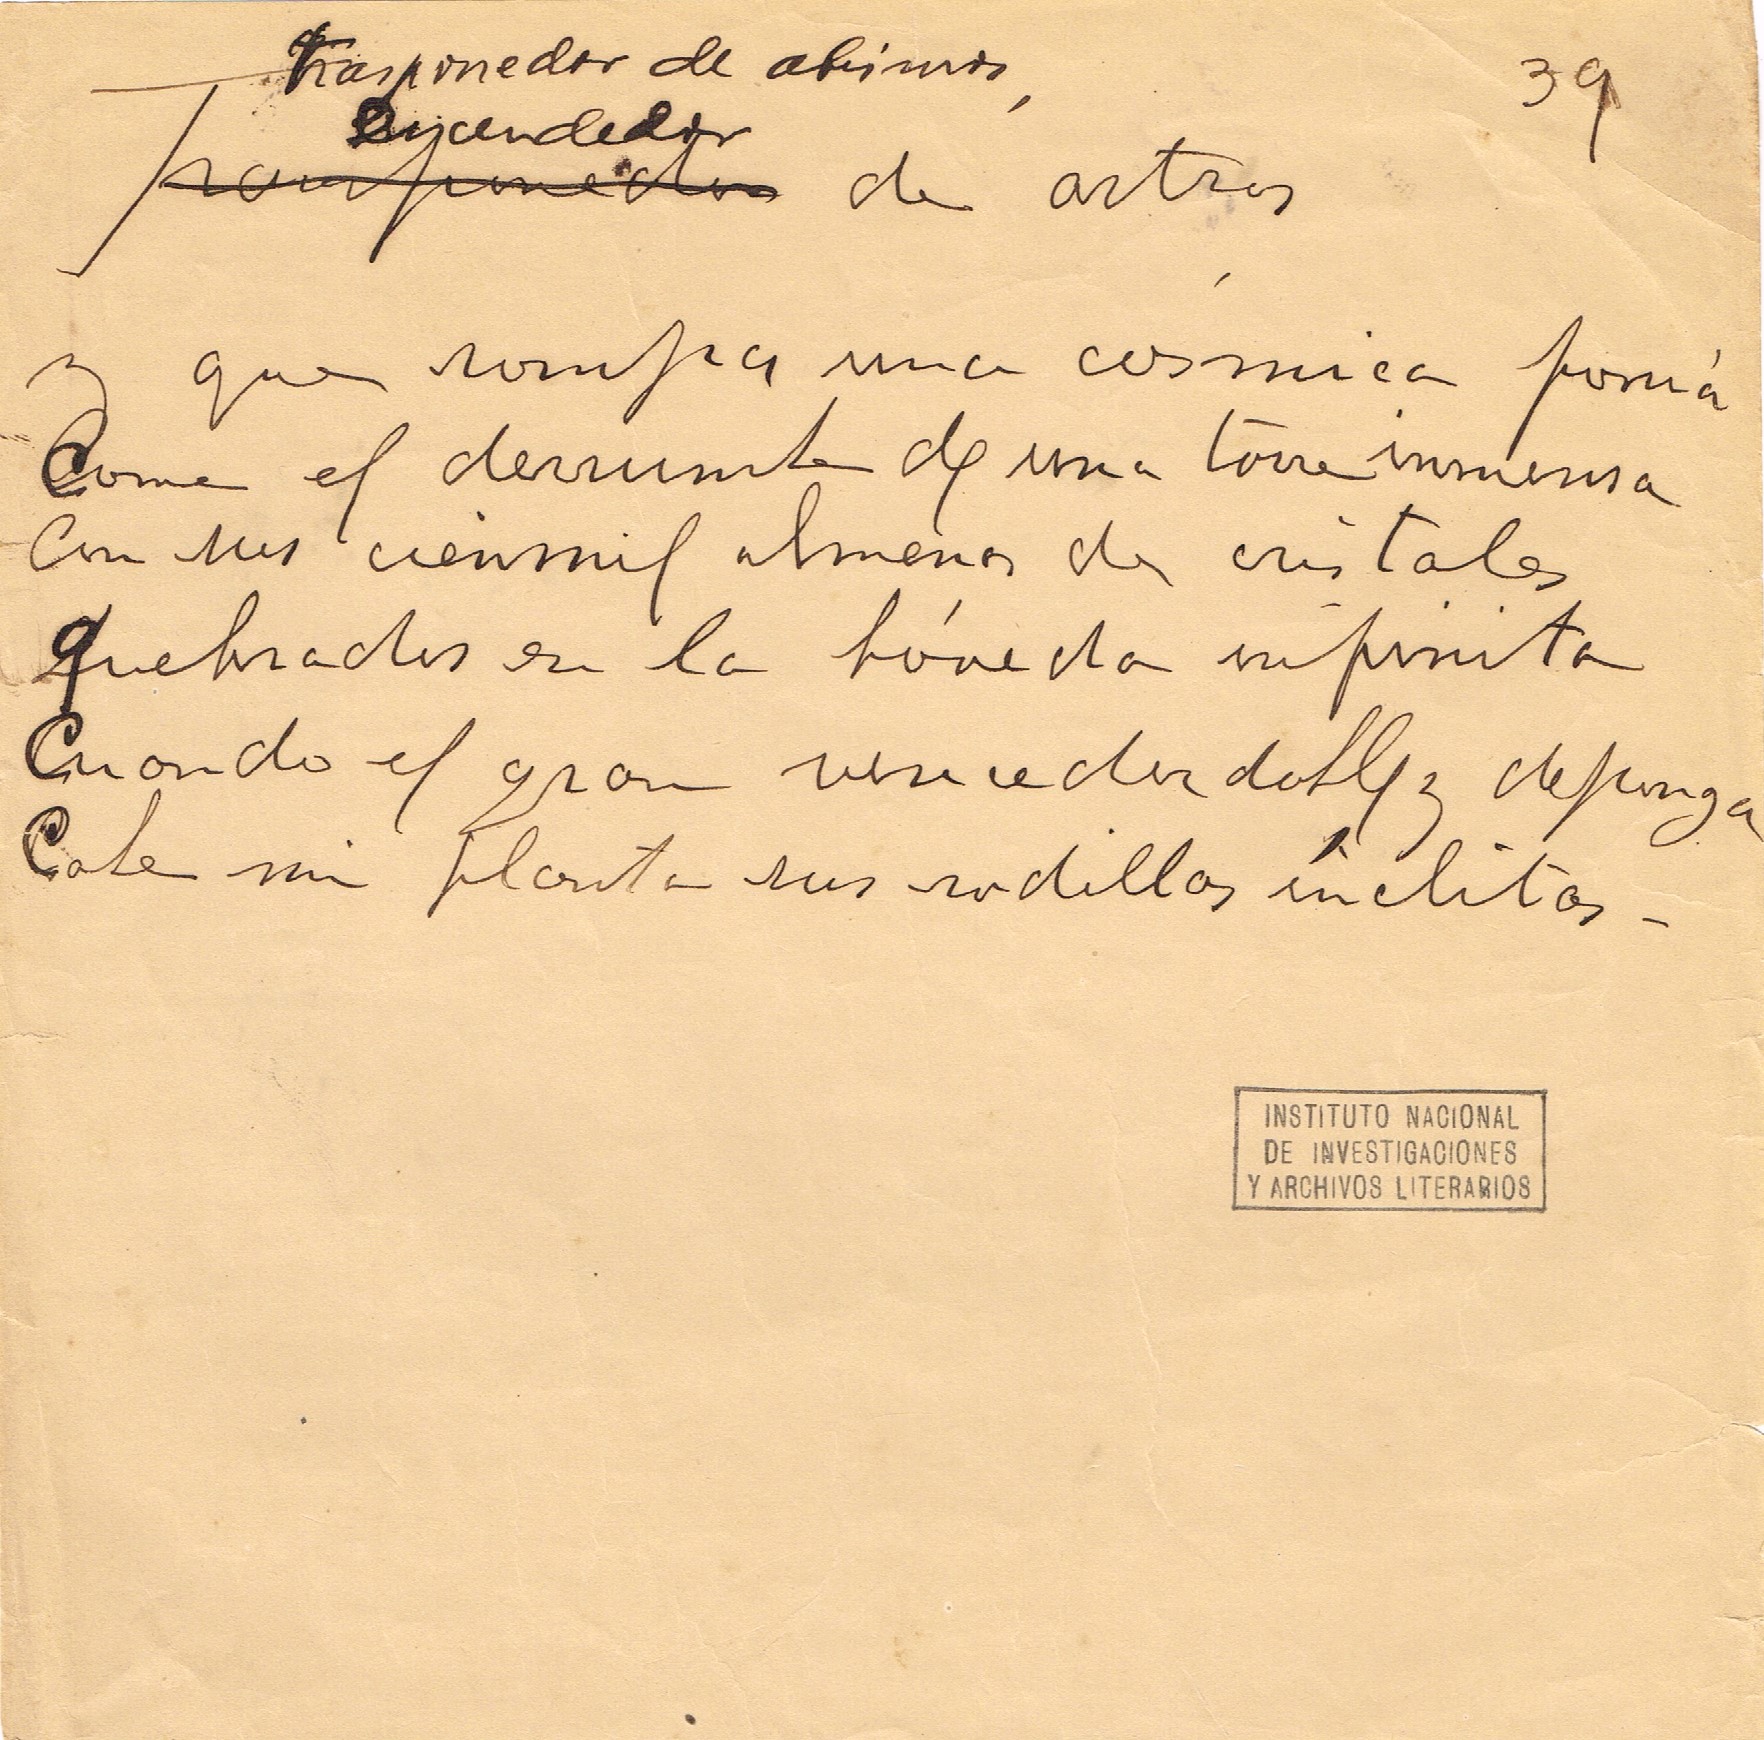 Trasponedor de abismos,
39
Encendedor
Transponedor de astros
y que rompa una cósmica fonía
Como el derrumbe de una torre inmensa
Con sus cienmil almenas de cristales
quebrados en la bóveda infinita
Cuando el gran vencedor doble y deponga
Cabe mi planta sus rodillas ínclitas -
INSTITUTO NACIONAL
DE INVESTIGACIONES
Y ARCHIVOS LITERARIOS